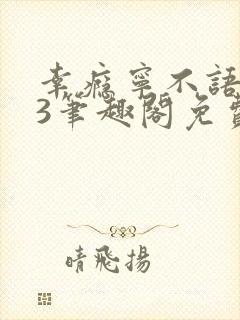 幸瘾寧不語
3筆趣閣免費
晴飛揚